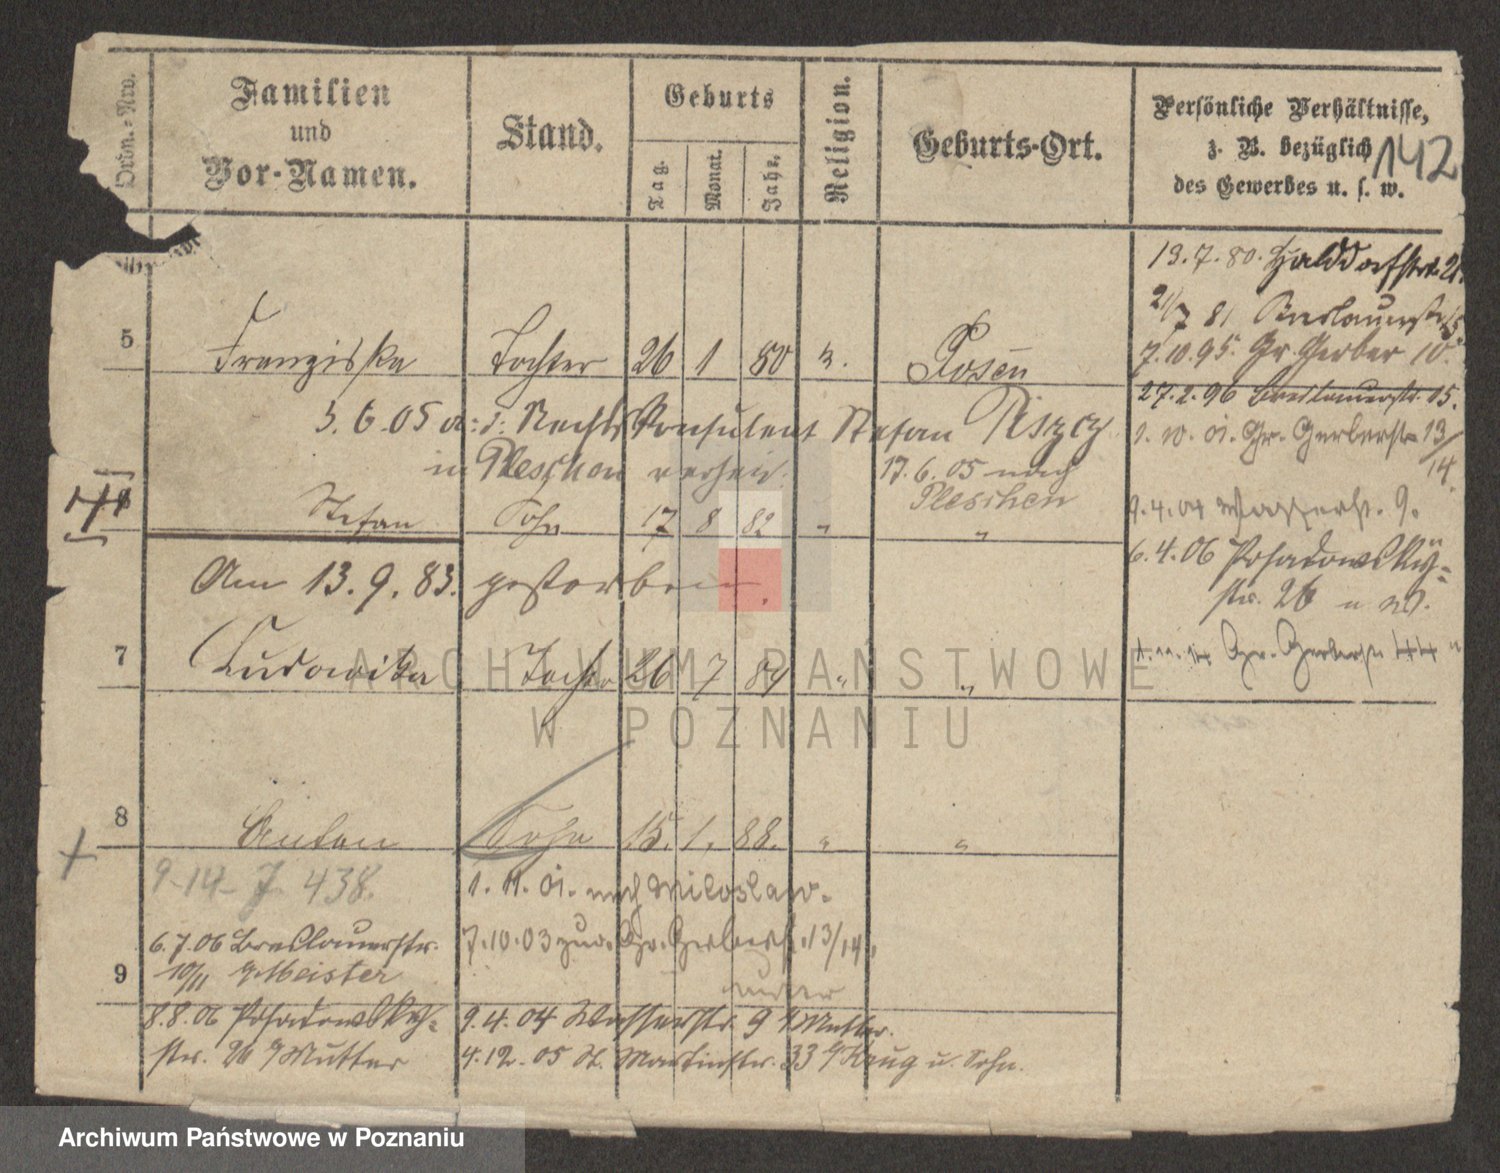 Ordn.-Nrо.
Familien
und
Vor-Namen.
Stand.
Geburts
Tag.
Monat.
Jahr.
Religion.
Geburts-Ort.
Persönliche Verhältnisse,
z. B. bezüglich
des Gewerbes u. s. w.
142
5 Franziska Tochter 26 1 80 Posen
5.6.05 Rechts Konsulent Stefan Piszcz
in Pleschen verheir.
17.6.05 nach
Pleschen
Stefan Sohn 17 8 82 " "
Am 13.9.83. gestorben.
7 Ludowika Tochter 26 7 84 " "
8 Anton Sohn 15. 1. 88. " "
9-14- 7 438.
1. 11. 01. nach Miloslaw.
6.7.06 Breslauerstr.
10/11 Meister
7.10.03 zur. Gr. Gerberstr. 13/14.
Mutter
9
8.8.06 Posadowsky-
str. 26 Mutter
9.4.04 Wasserstr. 9 Mutter.
4.12.05 St. Martinstr. 33 Krug u. Sohn.
13.7.80. Halbdorfstr.
21/7 81 Breslauerstr. 15
7.10.95. Gr. Gerber 10.
27.2.96 Breslauerstr. 15.
1. 10. 01. Gr. Gerberstr 13/
14.
9.4.04 Wasserstr. 9.
6.4.06 Posadowsky-
str. 26
Gr. Gerberstr
ARCHIWUM PAŃSTWOWE
W POZNANIU
Archiwum Państwowe w Poznaniu